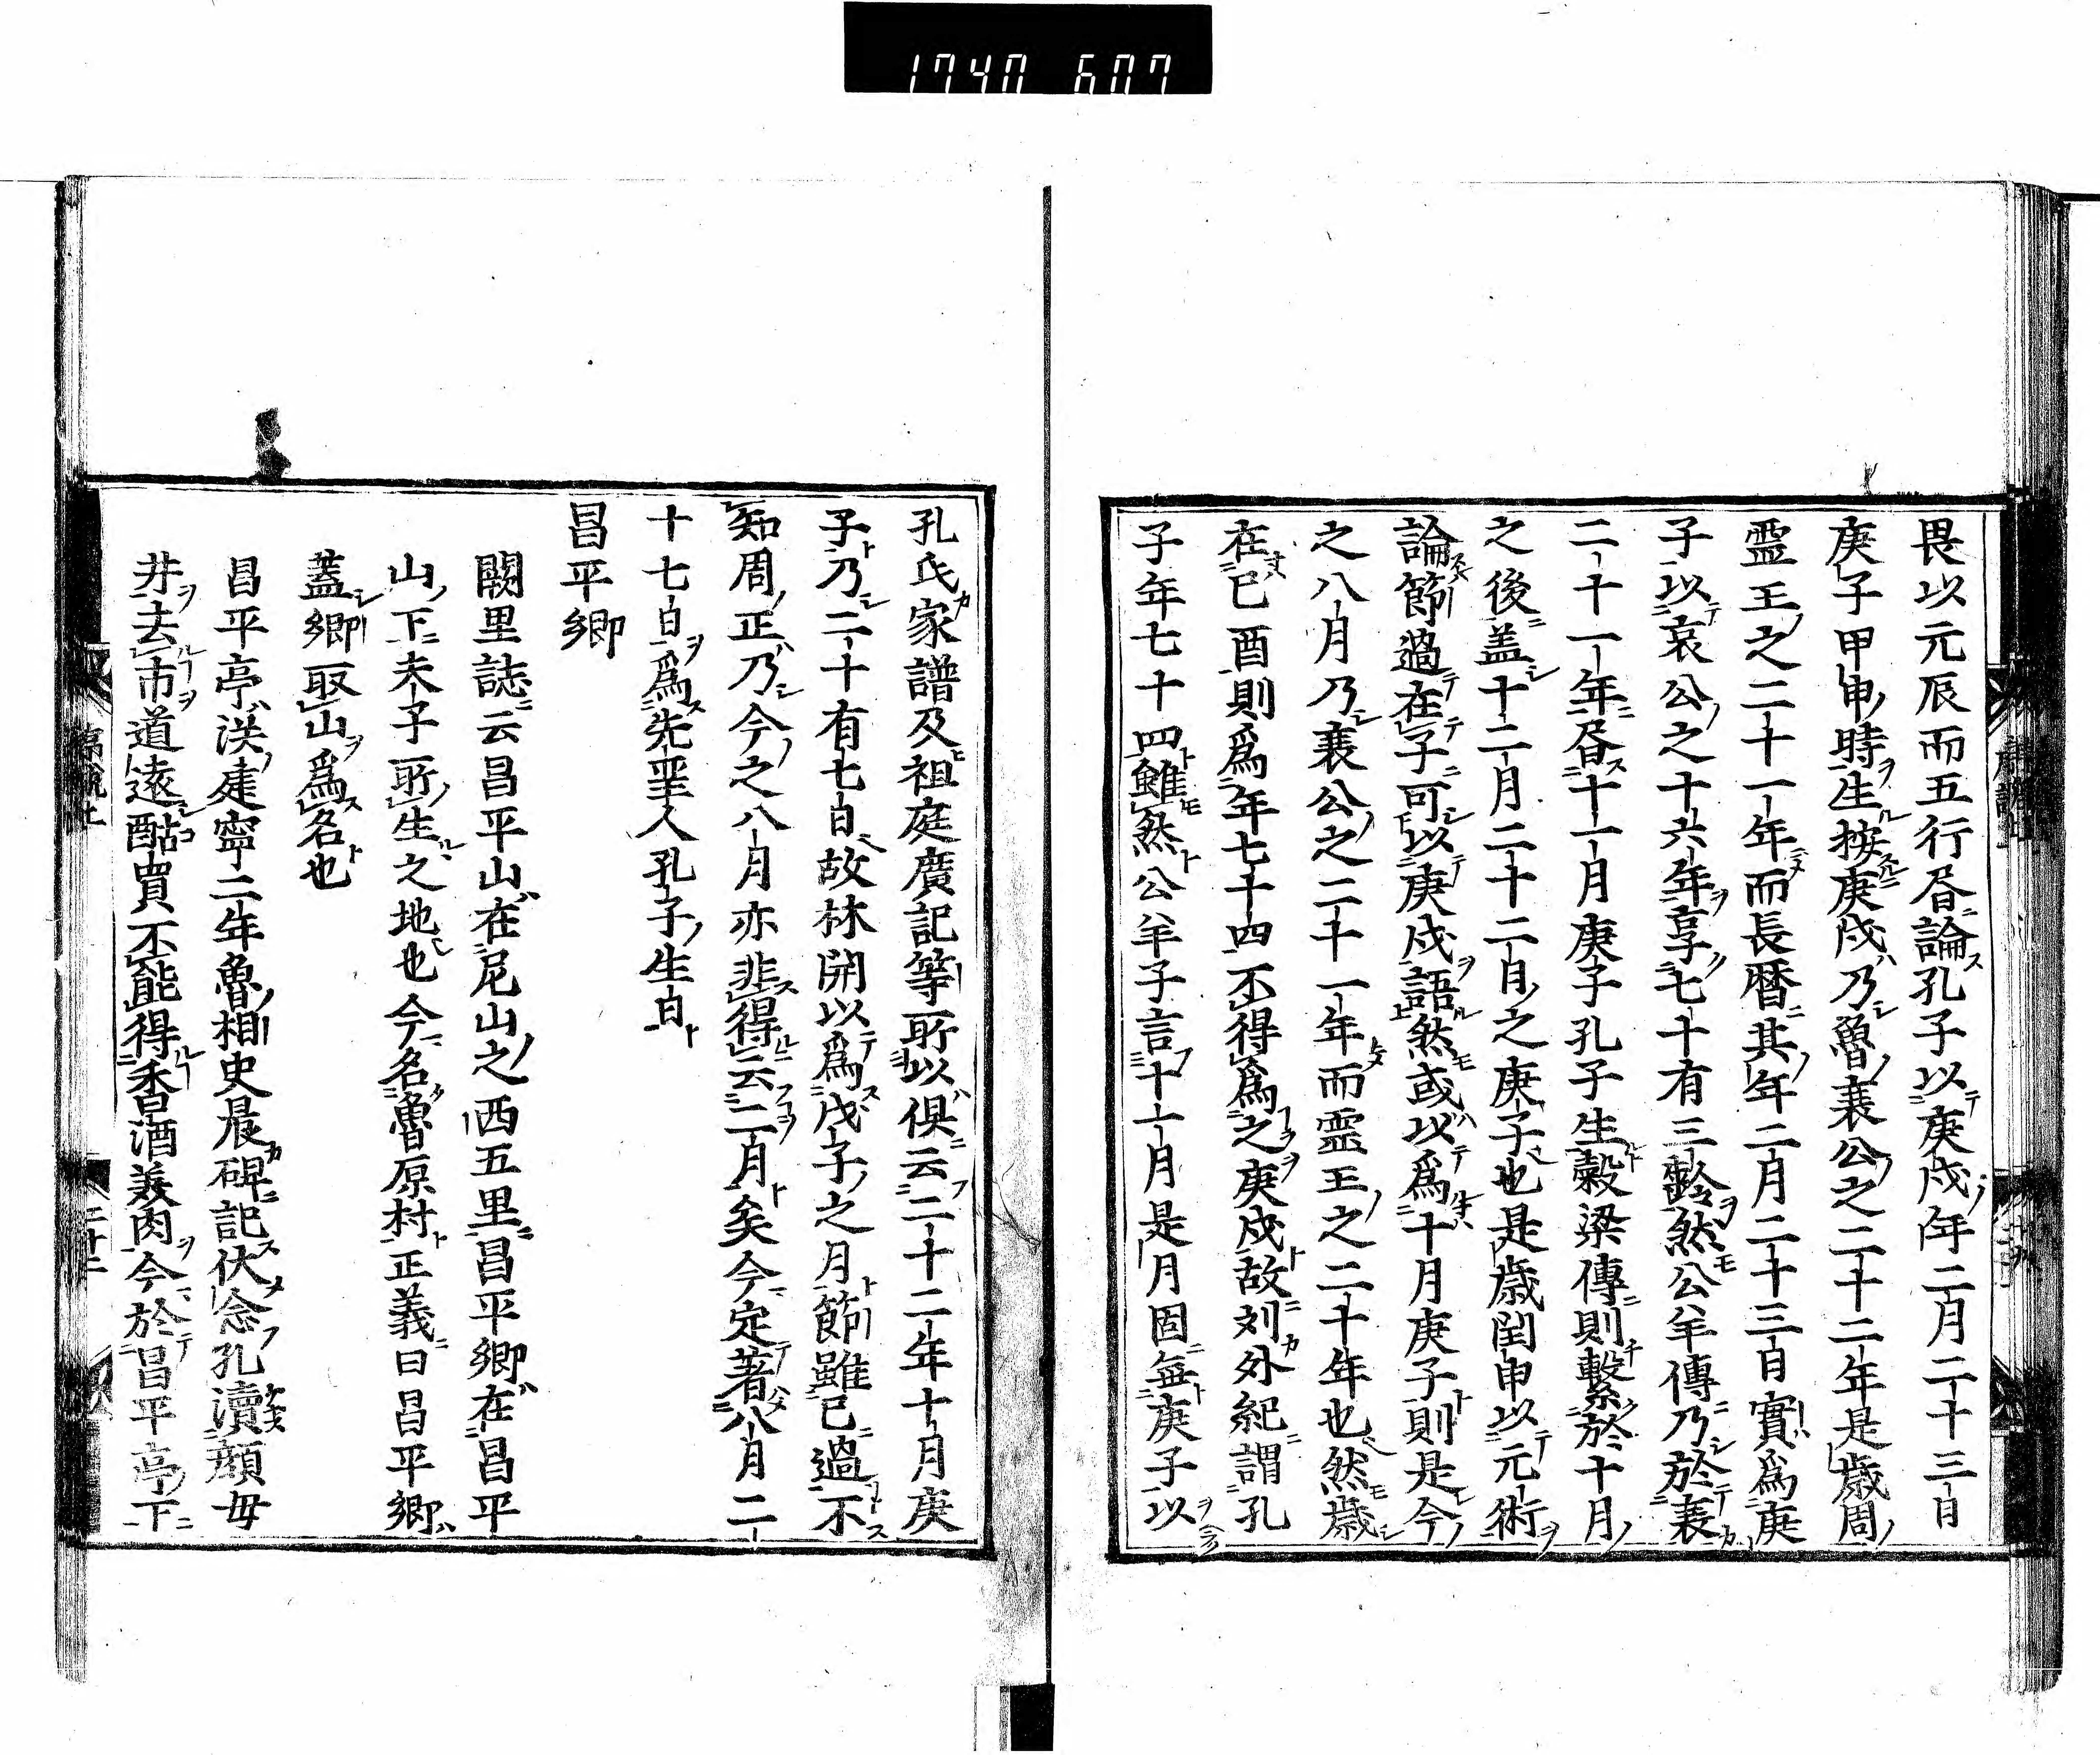 1740 607
畏以元辰而五行㫷論孔子以庚戌年二月二十三日
庚子甲申時生按庚戌乃魯襄公之二十二年是歳周
靈王之二十一年而長暦其年二月二十三日實爲庚
子以哀公之十六年享七十有三齡然公羊傳乃於襄
二十一年㫷十一月庚子孔子生穀梁傳則繋於十月
之後盖十二月二十二日之庚子也是歳閏申以元術
論節過在子可以庚戌語然或以爲十月庚子則是今
之八月乃襄公之二十一年而靈王之二十年也然歳
在己酉則爲年七十四不得爲之庚戌故刘外紀謂孔
子年七十四雖然公羊子言十一月是月固無庚子以
孔氏家譜及祖庭廣記等所以俱云二十二年十月庚
子乃二十有七日故林開以爲戊子之月節雖已過不
知周正乃今之八月亦非得云二月矣今定著八月二
十七日爲先聖人孔子生日
昌平郷
闕里誌云昌平山在尼山之西五里昌平郷在昌平
山下夫子所生之地也今名魯原村正義曰昌平郷
蓋郷取山爲名也
昌平亭漢建寧二年魯相史晨碑記伏念孔瀆顔毋
井去市道遠酤買不能得香酒美肉今於昌平亭下
二十二